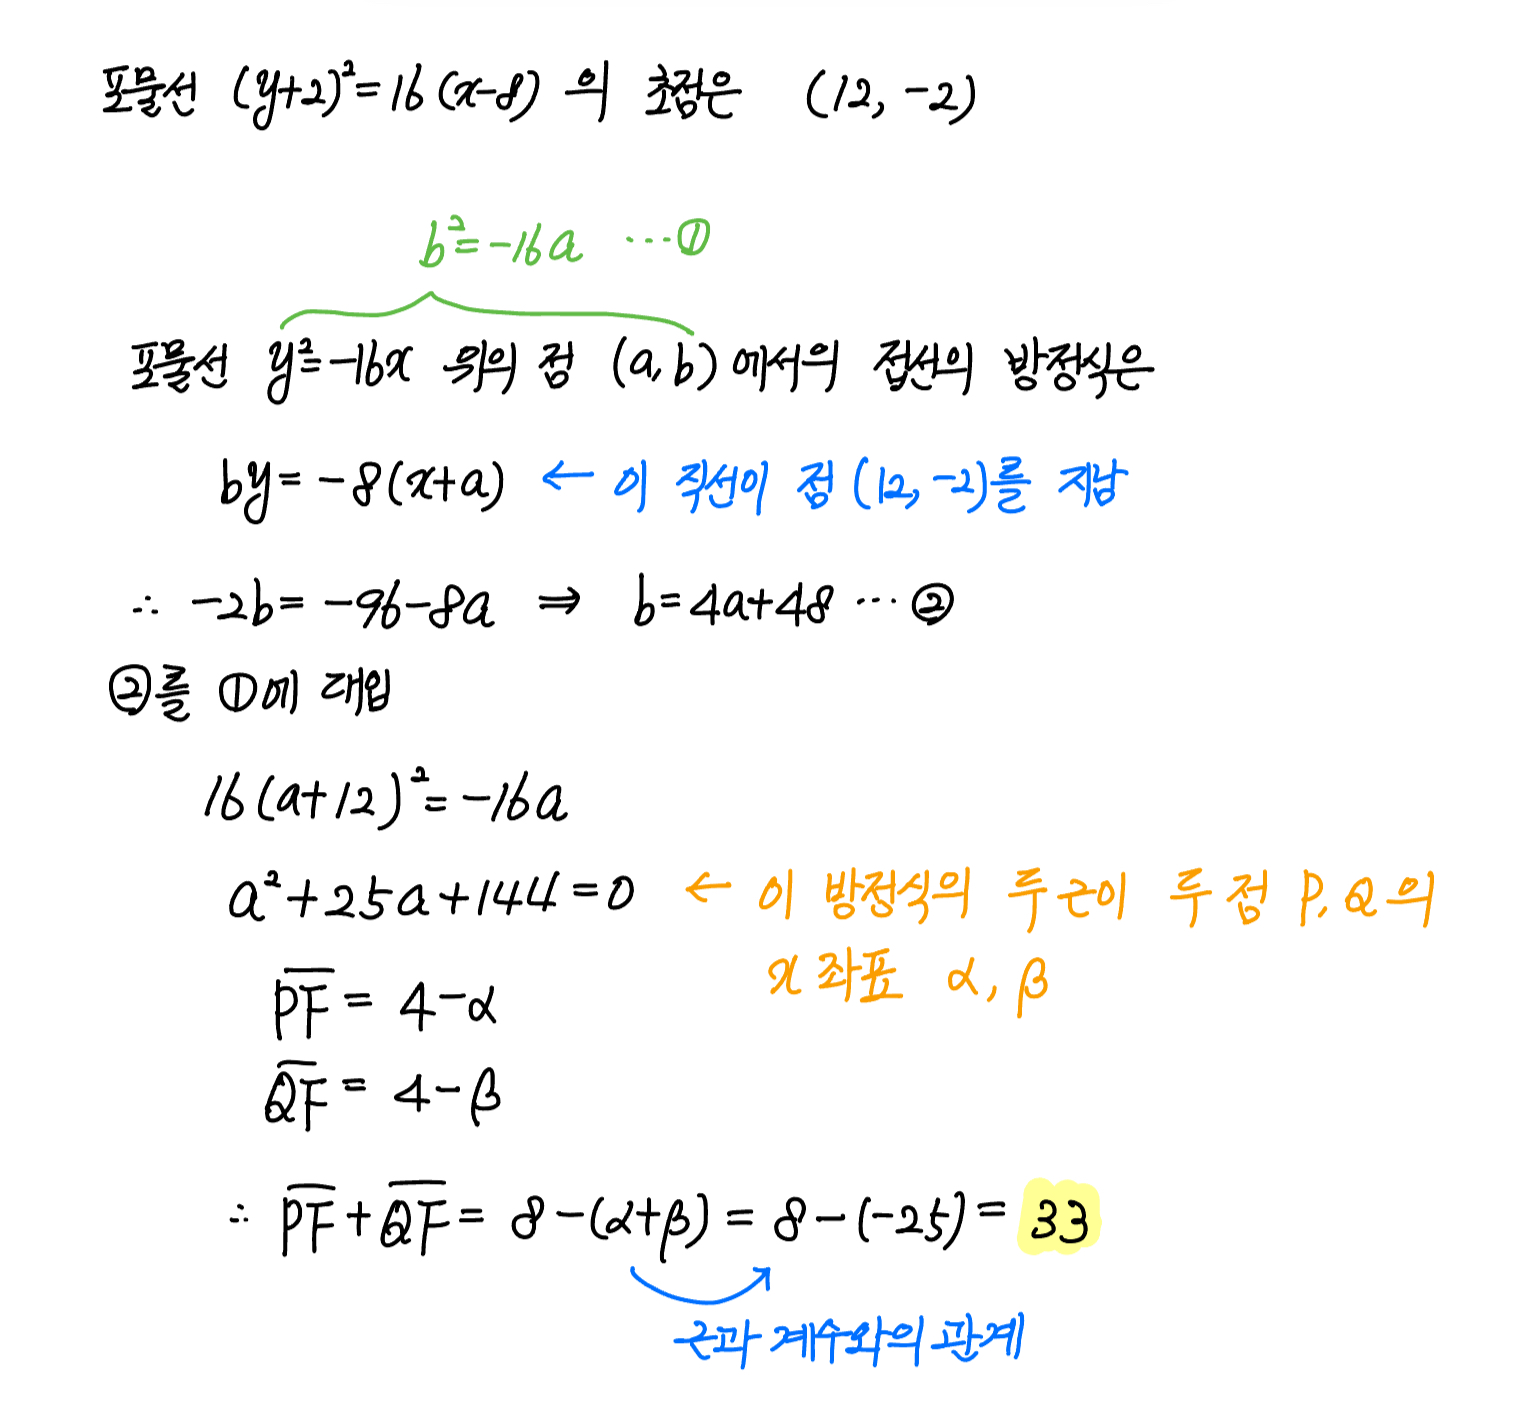 포물선 (y+2)²=16(x-8) 의 초점은 (12, -2)
b²=-16a ···①
포물선 y²=-16x 위의 점 (a, b)에서의 접선의 방정식은
by=-8(x+a) ← 이 직선이 점 (12, -2)를 지남
∴ -2b=-96-8a ⇒ b=4a+48 ···②
②를 ①에 대입
16(a+12)²=-16a
a²+25a+144=0 ← 이 방정식의 두근이 두 점 P, Q의
x좌표 α, β
P̅F̅ = 4-α
Q̅F̅ = 4-β
∴ P̅F̅+Q̅F̅ = 8-(α+β) = 8-(-25) = 33
근과 계수와의 관계